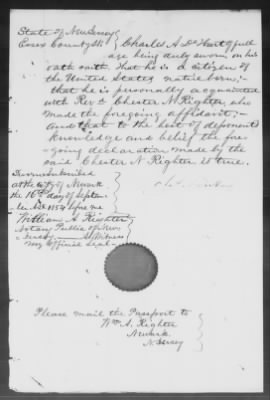 State of New Jersey }
Essex County SS } Charles A De Hart of full
age being duly sworn on his
oath saith, That he is a citizen of
the United States native born;
that he is personally acquainted
with Rev. Chester N. Righter who
made the foregoing affidavit;
And that to the best of deponents
knowledge and belief the fore
going declaration made by the
said Chester N Righter is true.
Sworn & subscribed
at the City of Newark
the 16th day of Septem
ber A.D. 1854 before me
William A Righter
Notary Public of New
Jersey Witness
my Official Seal
Please mail the Passport to
Wm A. Righter
Newark
N. Jersey